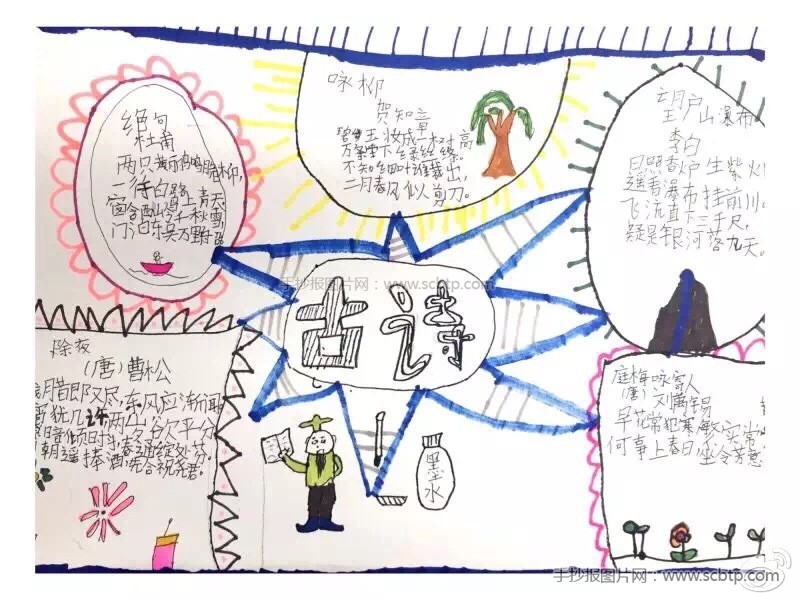 绝句
杜甫
两只黄鸝鸣翠柳，
一行白鹭上青天
窗含西岭千秋雪
门泊东吴万野
咏柳
贺知章
碧玉妆成一树高
万条垂下绿丝绦。
不知细叶谁裁出，
二月春风似剪刀。
望庐山瀑布
李白
日照香炉生紫火
遥看瀑布挂前川
飞流直下三千尺，
疑是银河落九天。
手抄报图片网：www.scbtp.com
古诗
除夜
（唐）曹松
腊月昔郎又尽，东风应渐闻
犹几许，两山欠平分
时春遍绽处分
朝遥捧酒，先合祝尧君。
墨水
庭梅咏寄人
（唐）刘禹锡
早花常犯寒，敏实常
何事上春日，坐令芳意
手抄报图片网：www.scbtp.com